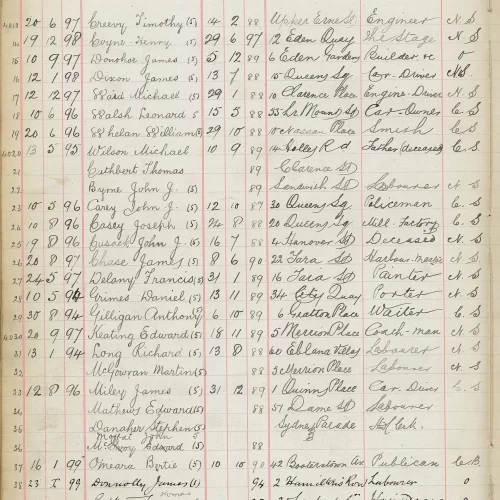 4013 20 6 97 Creevy Timothy (5) 14 2 88 Upper Erne St Engineer N.S
14 19 12 98 Coyne Henry (5) 29 6 97 12 Eden Quay The Stage N.S
15 10 9 97 Donohoe James (5) 5 12 89 6 Eden Gardens Builder &c O
16 12 1 98 Dixon James (5) 13 7 88 15 Queens Sq Car-Driver N.S.
17 12 12 97 Ward Michael (5) 29 1 88 10 Clarence Place Engine-Driver N.S
18 10 6 96 Walsh Leonard (5) 15 5 88 55 Le Mount St Car-Owner C.S
19 20 6 96 Whelan William (5) 29 10 88 10 Nassau Place Smith C.S
4020 13 5 95 Wilson Michael 10 9 89 14 Holles Rd Father (deceased) C.S
21 Cuthbert Thomas 89 Clarence St
22 Byrne John J. (5) 89 Sandwith St Labourer N.S
23 10 5 96 Carey John J. (5) 12 10 87 30 Queens Sq Policeman C.S
24 10 8 96 Casey Joseph (5) 24 8 88 20 Queens Sq Mill-Factory C.S
25 19 8 96 Cusack John J. (5) 16 7 88 4 Hanover St Deceased N.S
26 20 8 97 Chase James (5) 8 6 90 22 Tara St Harbour N.S
27 24 5 97 Delany Francis (5) 31 1 89 16 Tara St Painter N.S
28 10 5 94 Grimes Daniel (5) 13 11 89 34 City Quay Porter N.S
29 30 8 94 Gilligan Anthony (5) 6 10 89 6 Grattan Place Waiter C.S
4030 20 9 97 Keating Edward (5) 18 11 89 5 Merrion Place Coach-man N.S
31 13 1 94 Long Richard (5) 13 8 88 60 Eblana Villas Labourer N.S
32 McGowran Martin (5) 88 3 Merrion Place Labourer N.S
33 12 8 96 Miley James (5) 31 12 89 1 Quinn Place Car. Driver C.S
34 Mathews Edward (5) 88 57 Dame St Labourer
35 Danaher Stephen (5) Sydney Parade
John (5)
36 Edward (5) 88
37 16 1 99 Omeara Bertie (5) 10 10 90 42 Booterstown Av Publican C.B.
38 23 1 99 Donnolly James (5) 94 2 Hamiltons Row Labourer O